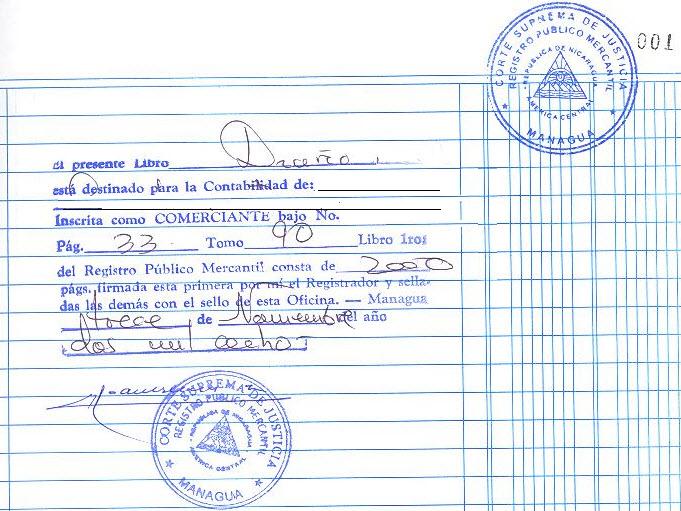 CORTE SUPREMA DE JUSTICIA
REGISTRO PUBLICO MERCANTIL
REPUBLICA DE NICARAGUA
AMERICA CENTRAL
MANAGUA
001
El presente Libro Diario
está destinado para la Contabilidad de:
Inscrita como COMERCIANTE bajo No.
Pág. 33 Tomo 90 Libro 1ro:
del Registro Público Mercantil consta de 2000
págs. firmada esta primera por mí el Registrador y sella-
das las demás con el sello de esta Oficina. — Managua
de Noviembre del año
dos mil ocho
CORTE SUPREMA DE JUSTICIA
REGISTRO PUBLICO MERCANTIL
REPUBLICA DE NICARAGUA
AMERICA CENTRAL
MANAGUA